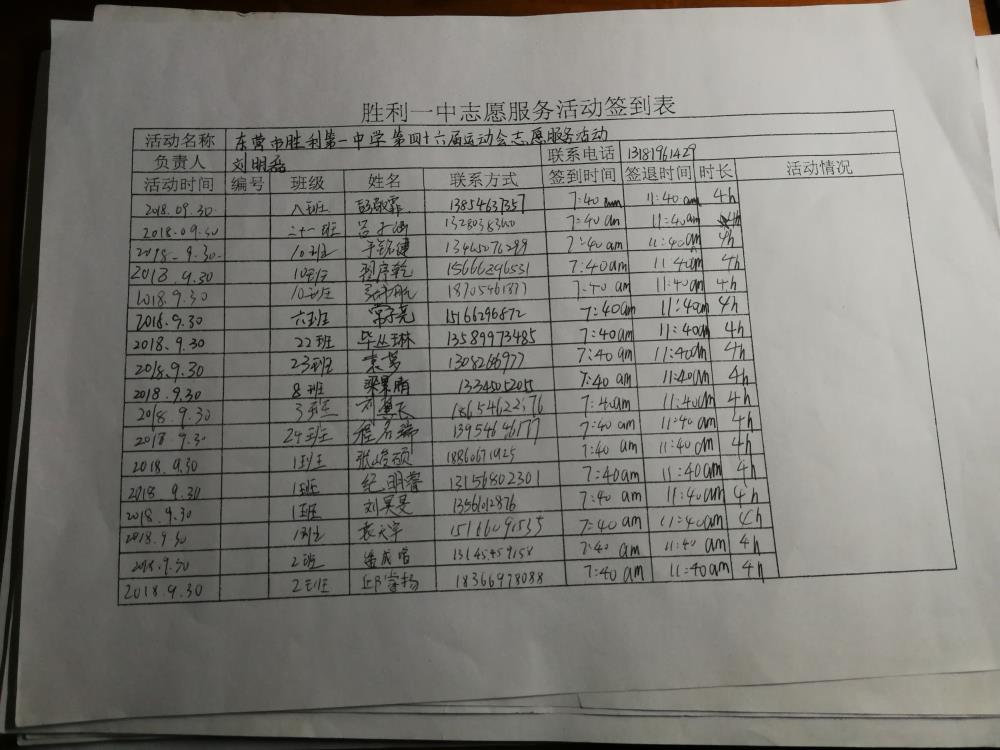 胜利一中志愿服务活动签到表
活动名称 东营市胜利第一中学第四十六届运动会志愿服务活动
负责人 刘明磊 联系电话 13181961429
活动时间 编号 班级 姓名 联系方式 签到时间 签退时间 时长 活动情况
2018.09.30. 八班 13854637357 7:40 am 11:40 am 4h
2018.09.30 二十一班 7:40 am 11:40am 4h
2018.9.30. 10班 于铭健 13465076299 7:40am 11:40am 4h
2018.9.30 10班 程序乾 15666296531 7:40am 11:40am 4h
2018.9.30 10班 18705461877 7:40 am 11:40am 4h
2018.9.30 六班 常子尧 15166296872 7:40am 11:40am 4h
2018.9.30 22班 毕丛琳 13589973485 7:40am 11:40am 4h
2018.9.30 23班 袁梦 1308266977 7:40am 11:40am 4h
2018.9.30 8班 梁景雨 13345052015 7:40 am 11:40am 4h
2018.9.30 3班 刘冀飞 18654622176 7:40am 11:40am 4h
2018.9.30 24班 程名瑞 13954646177 7:40 am 11:40 am 4h
2018.9.30 1班 张峻硕 18860671925 7:40 am 11:40 am 4h
2018.9.30 1班 纪明蓉 13156802301 7:40am 11:40am 4h
2018.9.30 1班 刘昊旻 13561012876 7:40 am 11:40am 4h
2018.9.30 1班 袁天宇 15166091535 7:40 am 11:40 am 4h
2018.9.30 2班 13145459158 7:40 am 11:40 am 4h
2018.9.30 2班 邱学杨 18366978088 7:40 am 11:40am 4h